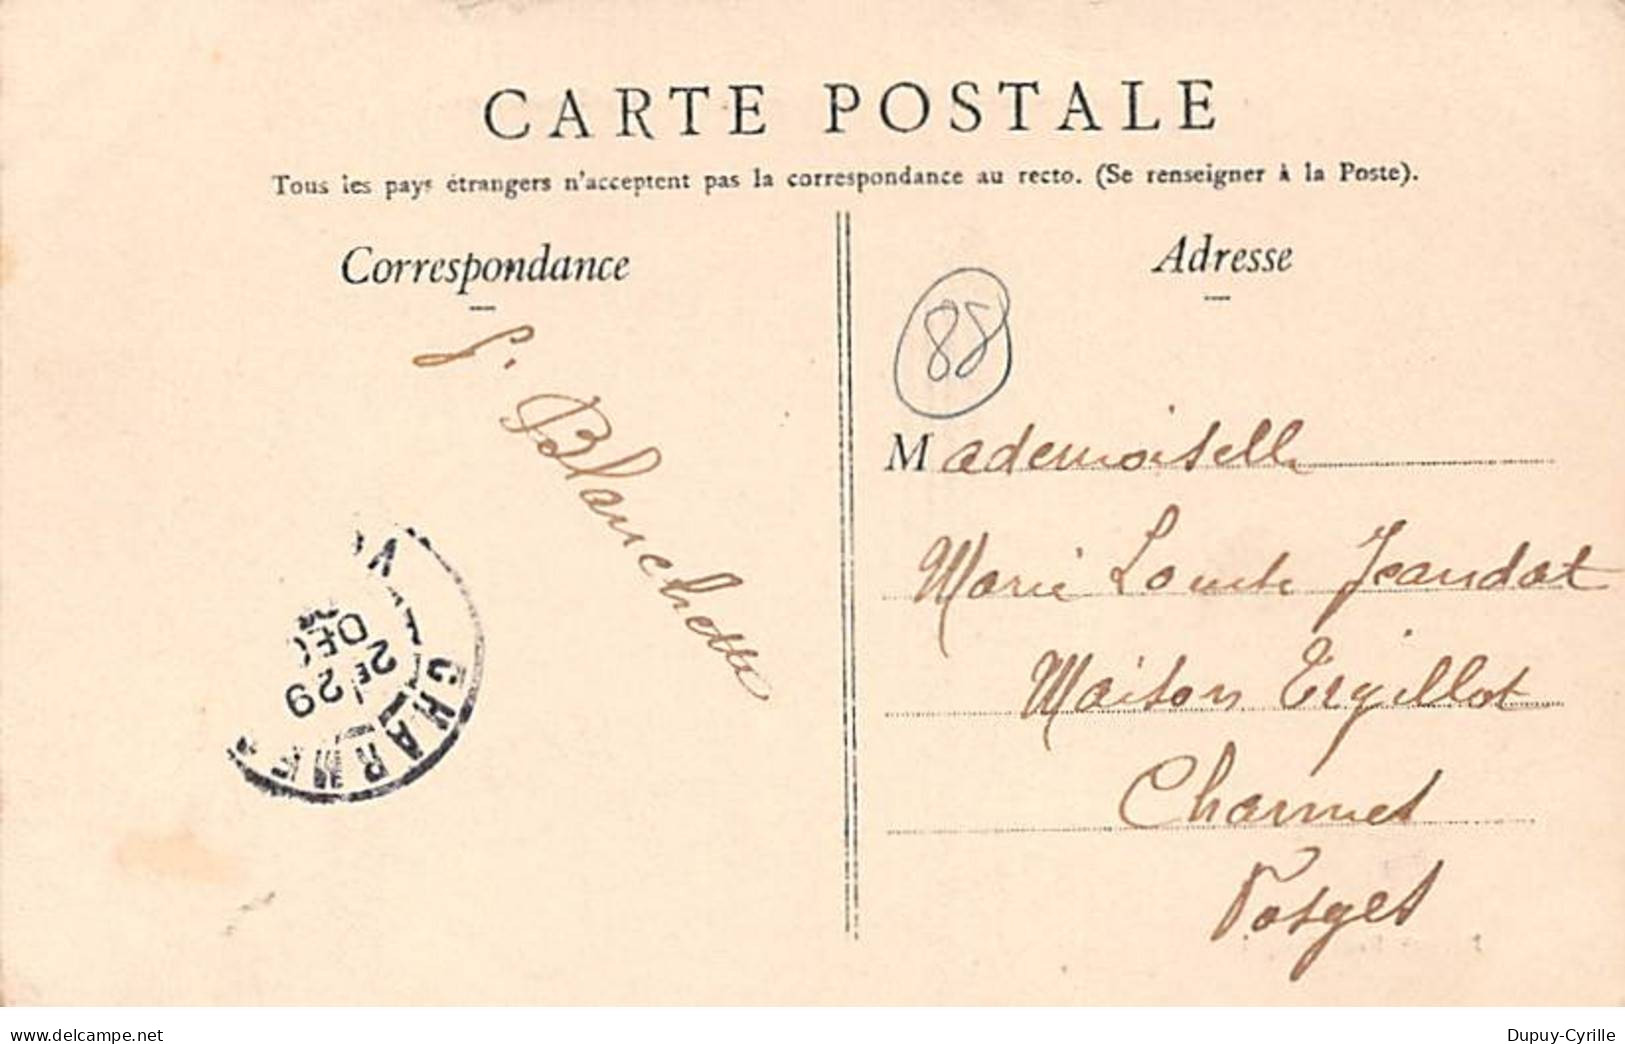 CARTE POSTALE
Tous les pays étrangers n'acceptent pas la correspondance au recto. (Se renseigner à la Poste).
Correspondance
Adresse
88
Blanchette
Mademoiselle
Marie Louise Jeandat
Maison Ergillot
Charmes
Vosges
CHARMES
2E/29
DEC
www.delcampe.net
Dupuy-Cyrille